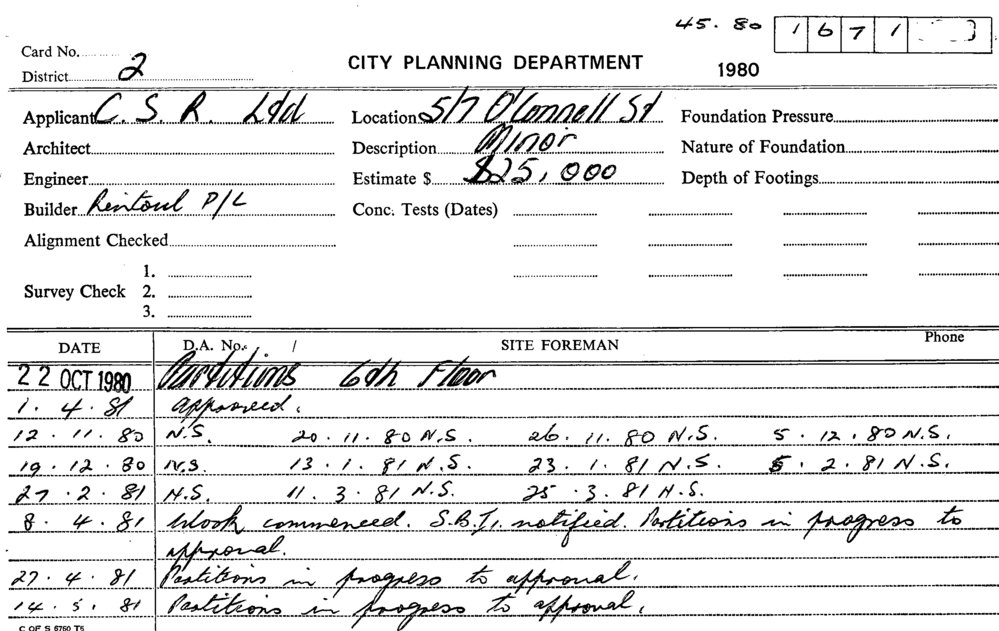 45. 80 1 6 7 1
Card No.
District 2
CITY PLANNING DEPARTMENT
1980
Applicant C. S. R. Ltd Location 5/7 O'Connell St Foundation Pressure
Architect Description Minor Nature of Foundation
Engineer Estimate $ $25,000 Depth of Footings
Builder Rintoul P/L Conc. Tests (Dates)
Alignment Checked
1.
Survey Check 2.
3.
DATE D.A. No. / SITE FOREMAN Phone
22 OCT 1980 Partitions 6th Floor
1. 4. 81 approved.
12. 11. 80 N.S. 20. 11. 80 N.S. 26. 11. 80 N.S. 5. 12. 80 N.S.
19. 12. 80 N.S. 13. 1. 81 N.S. 23. 1. 81 N.S. 5. 2. 81 N.S.
27. 2. 81 N.S. 11. 3. 81 N.S. 25. 3. 81 N.S.
8. 4. 81 Work commenced. S.B.I. notified. Partitions in progress to
approval.
27. 4. 81 Partitions in progress to approval.
14. 5. 81 Partitions in progress to approval.
C OF S 6760 T5